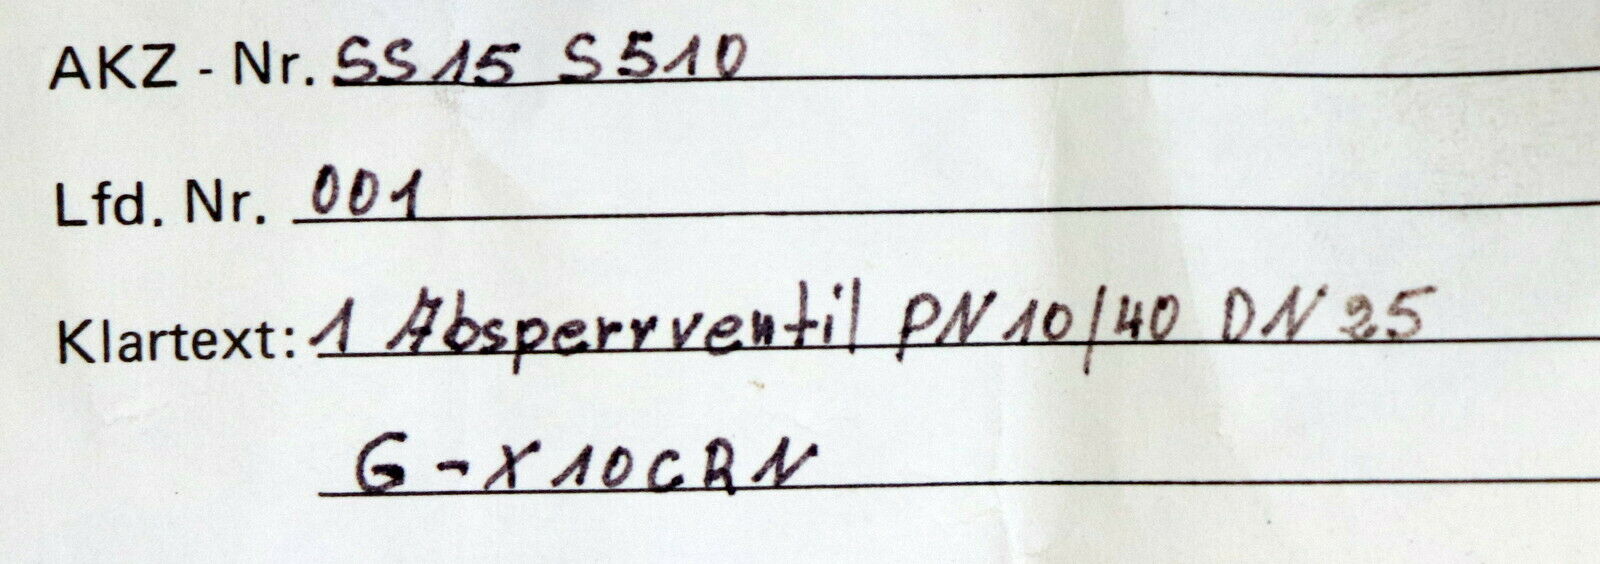 AKZ - Nr. SS15 S510
Lfd. Nr. 001
Klartext: 1 Absperrventil PN 10/40 DN 25
G-X10CRN